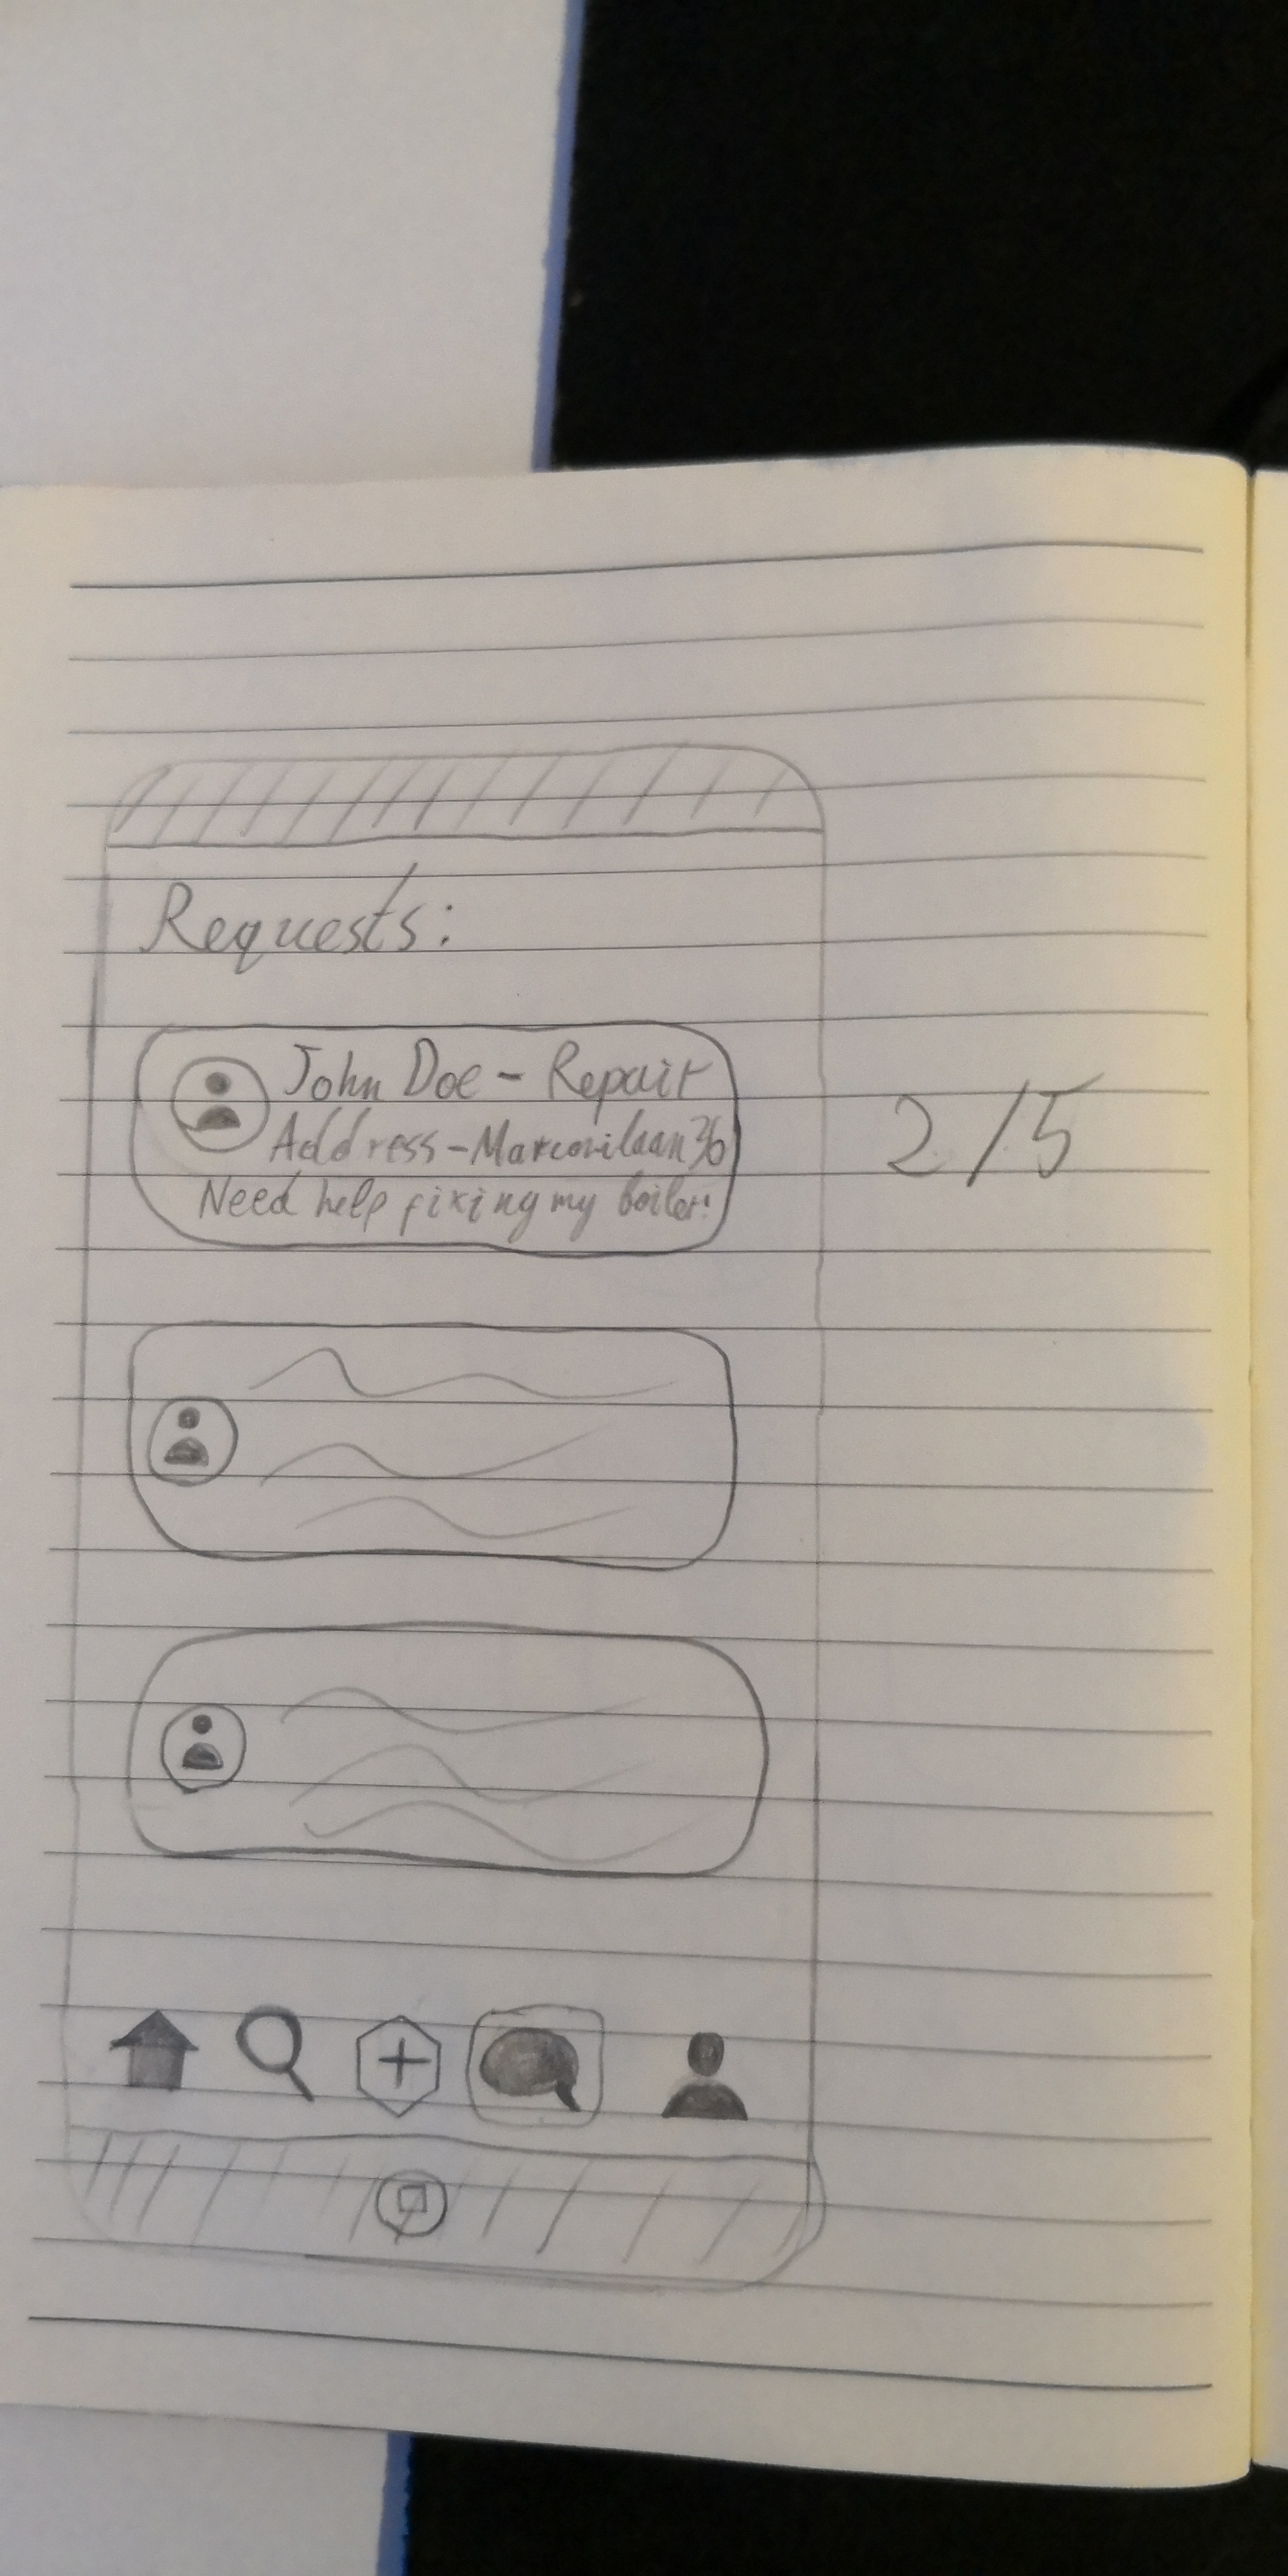 Requests:
John Doe - Repair
Address - Marconilaan 36
Need help fixing my boiler!
2/5